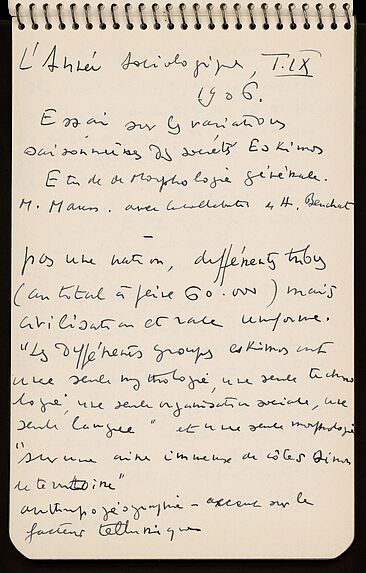 L'Année Sociologique, T. IX
1906.
Essai sur les variations
saisonnières des sociétés Eskimos
Etude de Morphologie générale.
M. Mauss. avec la collaboration de H. Beuchat
pas une nation, différents tribus
(au total à peine 60.000) mais
civilisation et race uniforme.
"Les différents groupes eskimos ont
une seule mythologie, une seule techno
logie, une seule organisation sociale, une
seule langue" et une seule morphologie
"sur une aire immense de côtes sinon
de territoire"
anthropogéographie - accent sur le
facteur tellurique